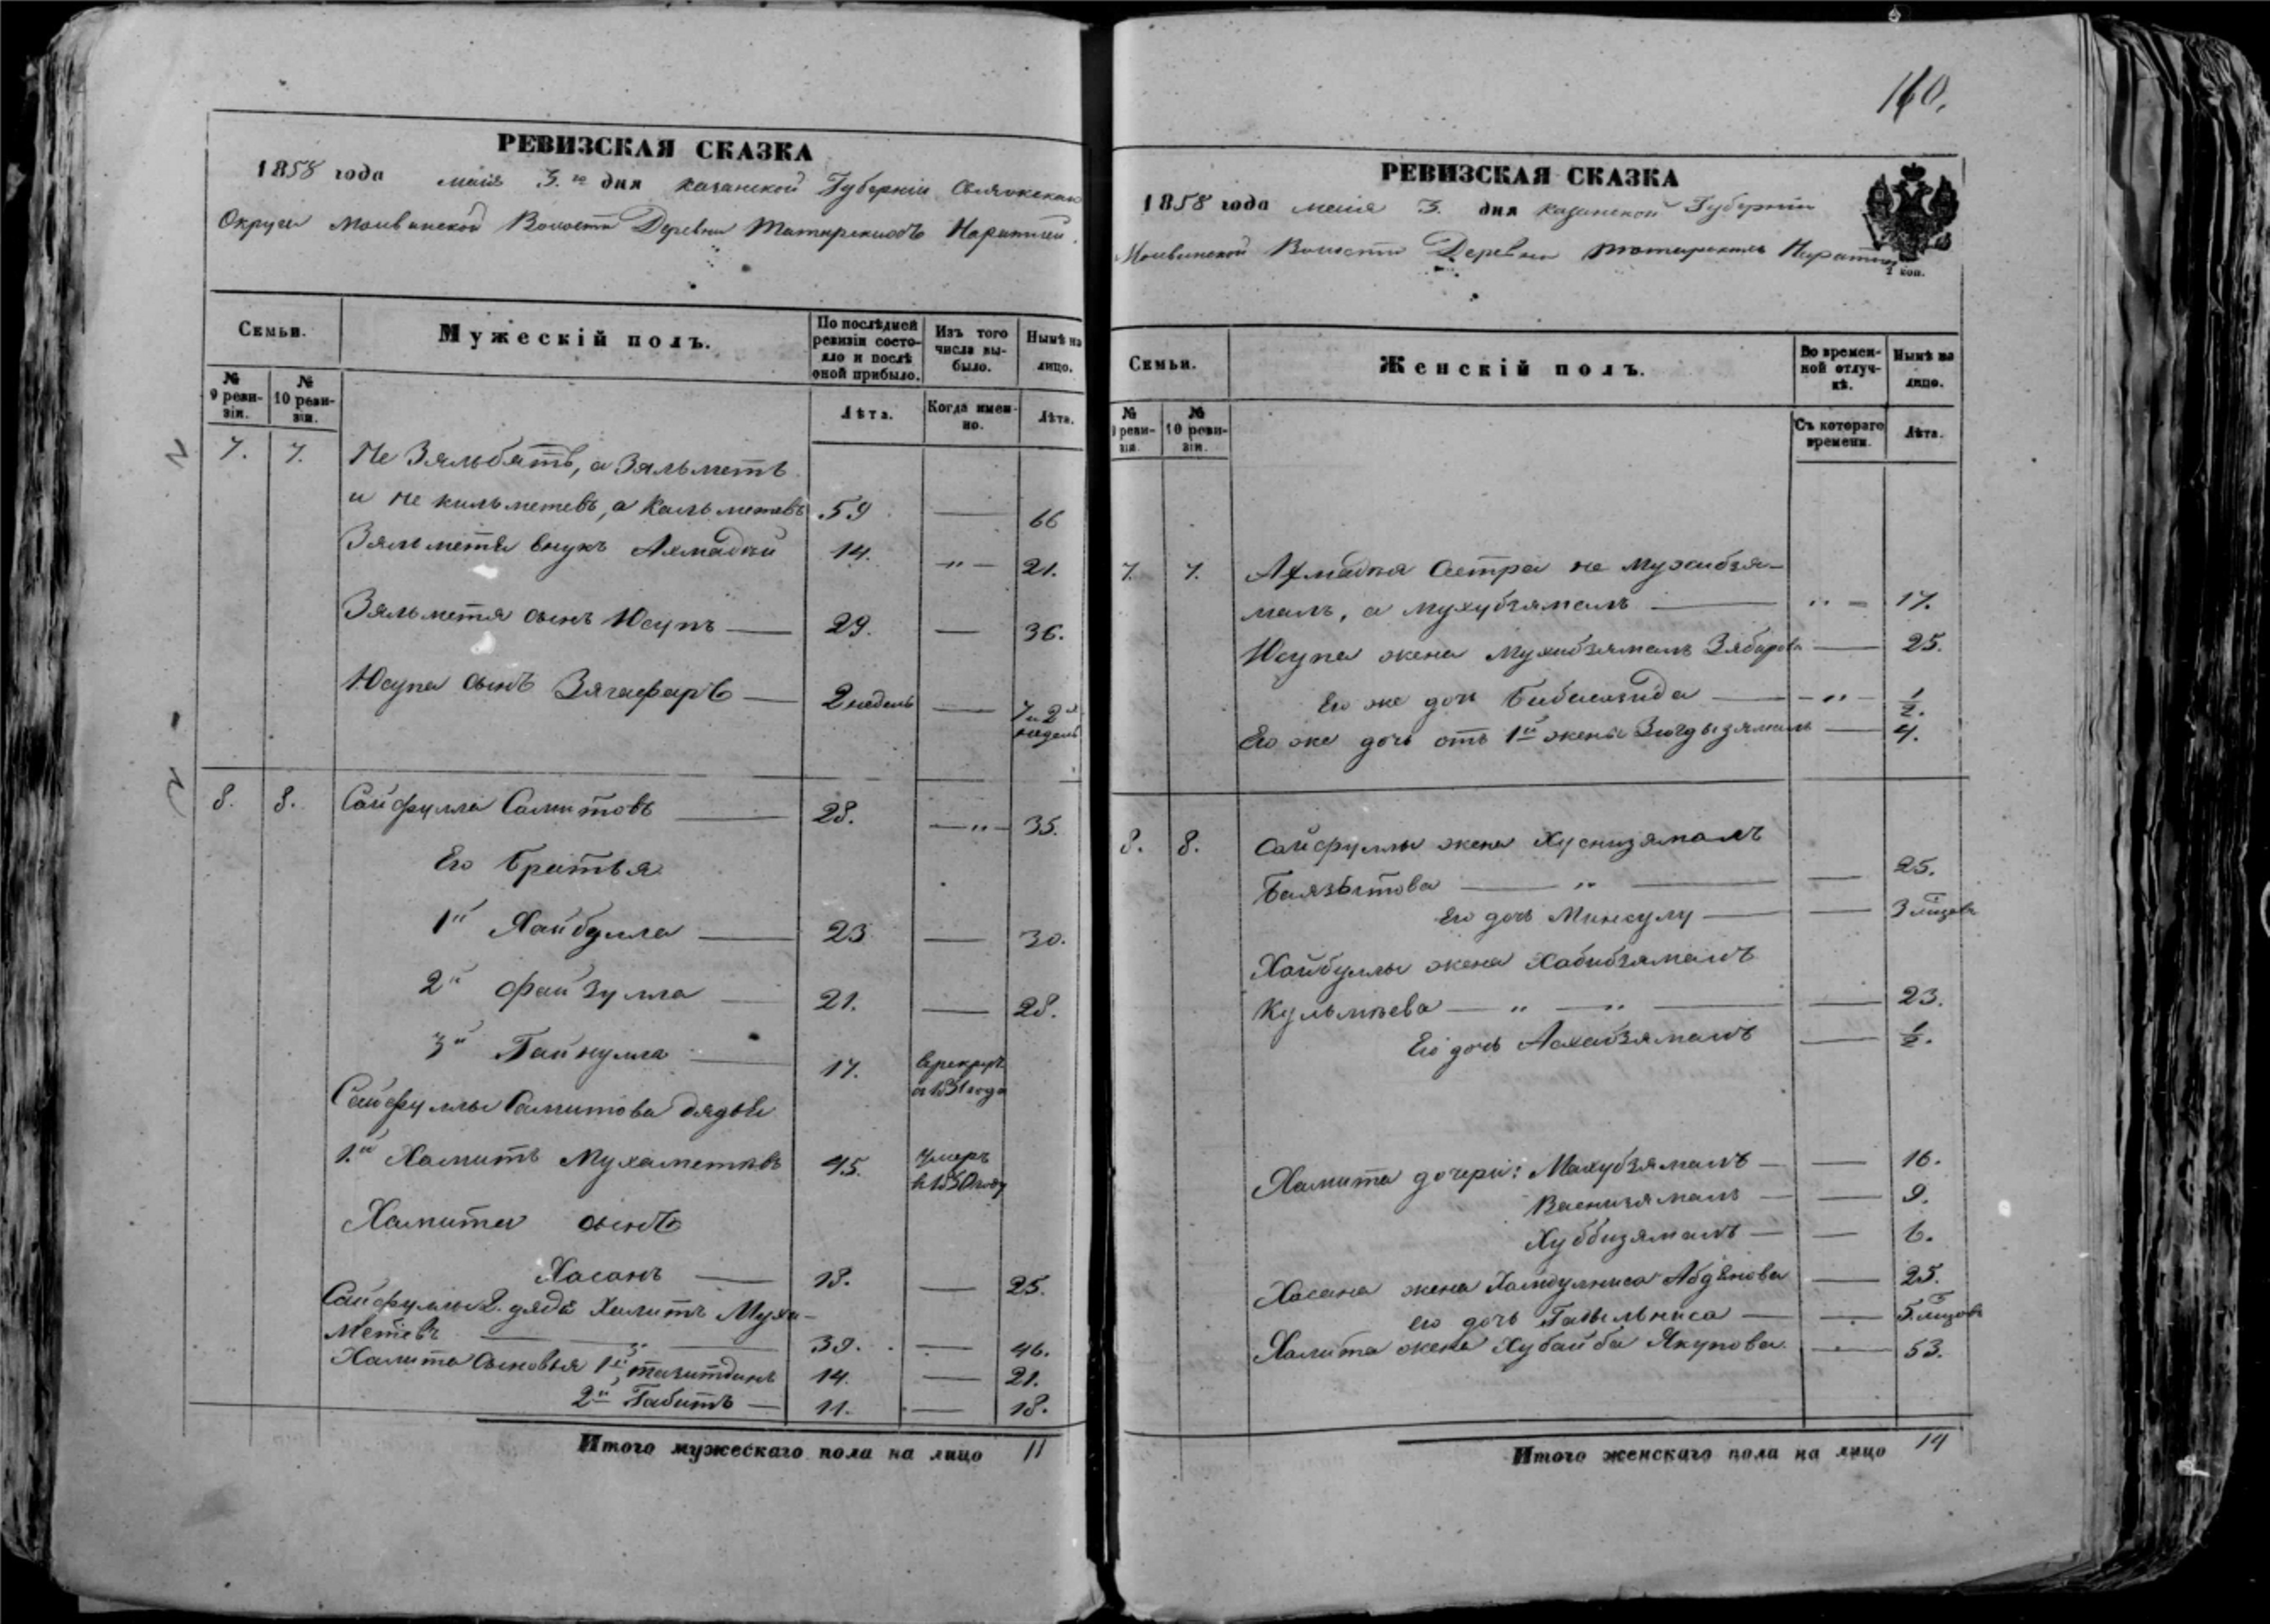 РЕВИЗСКАЯ СКАЗКА
1858 года маія 3.го дня Казанской Губерніи Свіяжской
Округи Моивинской Волости Деревни Татарскихъ Наратлей.
Семьи.
Мужескій полъ.
По послѣдней ревизіи состояло и послѣ оной прибыло.
Изъ того числа выбыло.
Нынѣ на лицо.
№ 9 ревизіи.
№ 10 ревизіи.
Лѣта.
Когда именно.
Лѣта.
7. 7. Не Зяльбятъ, а Зяльметь
и не Кильметевъ, а Кальметевъ 59 — 66
Зяльметя внукъ Ахмадѣй 14. „ — 21.
Зяльметя сынъ Юсупъ — 29. — 36.
Юсупа сынъ Зягафаръ — 2 недель — 7 и 2
недель
8. 8. Сайфулла Самитовъ — 28. — „ — 35.
Его братья
1й Хайбулла — 23 — 30.
2й Файзулла — 21. — 28.
3й Гайнулла — 17. в рекрут.
с 1851 года
Сайфуллы Самитова дядья
1.й Хамитъ Мухаметевъ 45. умеръ
в 1850 году
Хамита сынъ
Хасанъ — 18. — 25.
Сайфуллы 2. дядя Халитъ Муха-
метевъ — 39. — 46.
Халита сыновья 1й Тазитдинъ 14. — 21.
2й Габитъ — 11. — 18.
Итого мужескаго пола на лицо 11
160.
РЕВИЗСКАЯ СКАЗКА
1858 года маія 3. дня Казанской Губерніи
Моивинской Волости Деревни Татарскихъ Наратлей
2 коп.
Семьи.
Женскій полъ.
Во временной отлучкѣ.
Нынѣ на лицо.
№ 9 ревизіи.
№ 10 ревизіи.
Съ котораго времени.
Лѣта.
7. 7. Ахмадѣя сестра не Мухибзя-
малъ, а Мухубзямалъ — „ — 17.
Юсупа жена Мухибзямалъ Зябарова — 25.
Его же дочь Бибисагида — „ — 1/2.
Его же дочь отъ 1й жены Зюгдызямаль — 4.
8. 8. Сайфуллы жена Хуснизямалъ
Баязытова — „ — 25.
Его дочь Минсулу — 3 месяцъ
Хайбуллы жена Хабибзямалъ
Кульмѣева — „ — „ — 23.
Его дочь Асхабзямалъ — 1/2.
Хамита дочери: Махубзямалъ — 16.
Васинзямалъ — 9.
Хуббизямалъ — 6.
Хасана жена Хамдулниса Абдѣнова — 25.
его дочь Галыльниса — 5 месяцъ
Халита жена Хубайба Якупова — 53.
Итого женскаго пола на лицо 14